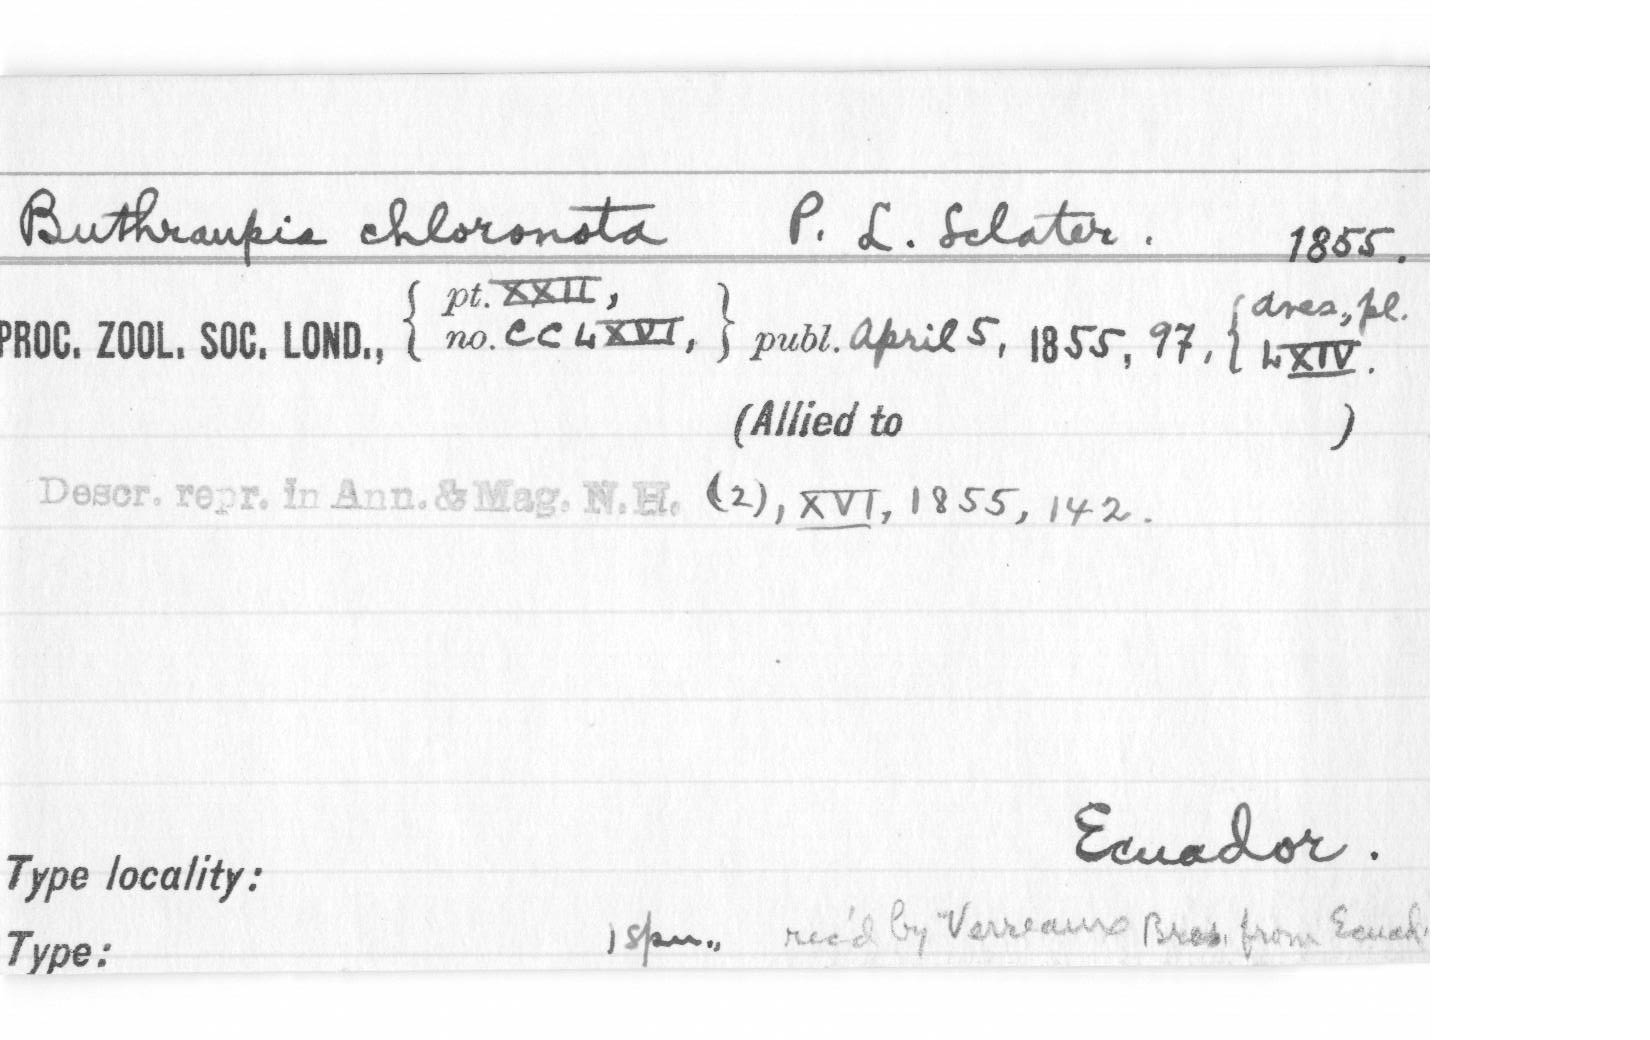 Buthraupis chloronota P. L. Sclater. 1855.
PROC. ZOOL. SOC. LOND., { pt. XXII, no. CCLXVI, } publ. April 5, 1855, 97, { Aves, pl. LXIV.
(Allied to )
Descr. repr. in Ann. & Mag. N.H. (2), XVI, 1855, 142.
Ecuador.
Type locality:
Type: 1 spm., rec'd by Verreaux Bros. from Ecuad.